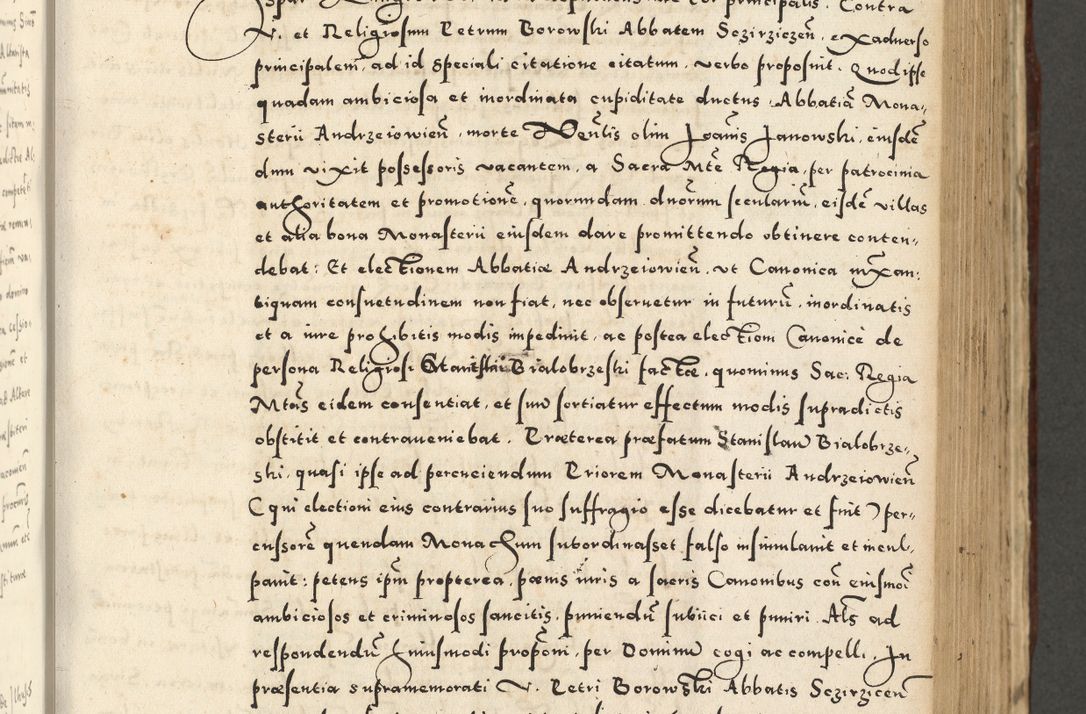 principalis. Contra
V. et Religiosum Petrum Borowski Abbatem Sczirziczeñ, exaduerso
principalem, ad id speciali citatione citatum, verbo proposuit. Quod ipse
quadam ambiciosa et inordinata cupiditate ductus, Abbatiã Mona,,
sterii Andrzeiowieñ, morte Veñlis olim Joañis Janowski, eiusdẽ
dum vixit possessoris vacantem, a Sacra Mte Regia, per patrocinia
authoritatem et promotionẽ, quorundam duorum seculariũ, eisdẽ villas
et alia bona Monasterii eiusdem dare promittendo obtinere conten,
debat: Et electionem Abbatiæ Andrzeiowieñ, vt Canonica iuxan:
tiquam consuetudinem non fiat, nec obseruetur in futurũ, inordinatis
et a iure prohibitis modis impediuit, ac postea electiom Canonicè de
persona Religiosi Stanislai Bialobrzeski factæ, quominus Sac: Regia
Mtas eidem consentiat, et suũ sortiatur effectum modis supradictis
obstitit et contraueniebat. Præterea præfatum Stanislaũ Bialobrze,,
ski, quasi ipse ad percuciendum Priorem Monasterii Andrzeiowieñ
(qui electioni eius contrarius suo suffragio esse dicebatur et fuit) per,,
cussorẽ quendam Monachum subordinasset falso insimulauit et incul,
pauit: petens ipm̃ propterea, pœnis iuris a sacris Canonibus coñ eiusmõi
ambiciosos et criminosos sancitis, puniendũ subiici et puniri. Als ad
respondendũ huiusmodi propõni, per Dominũ cogi ac compelli. In
præsentia supramemorati V. Petri Borowski Abbatis Sczirziceñ